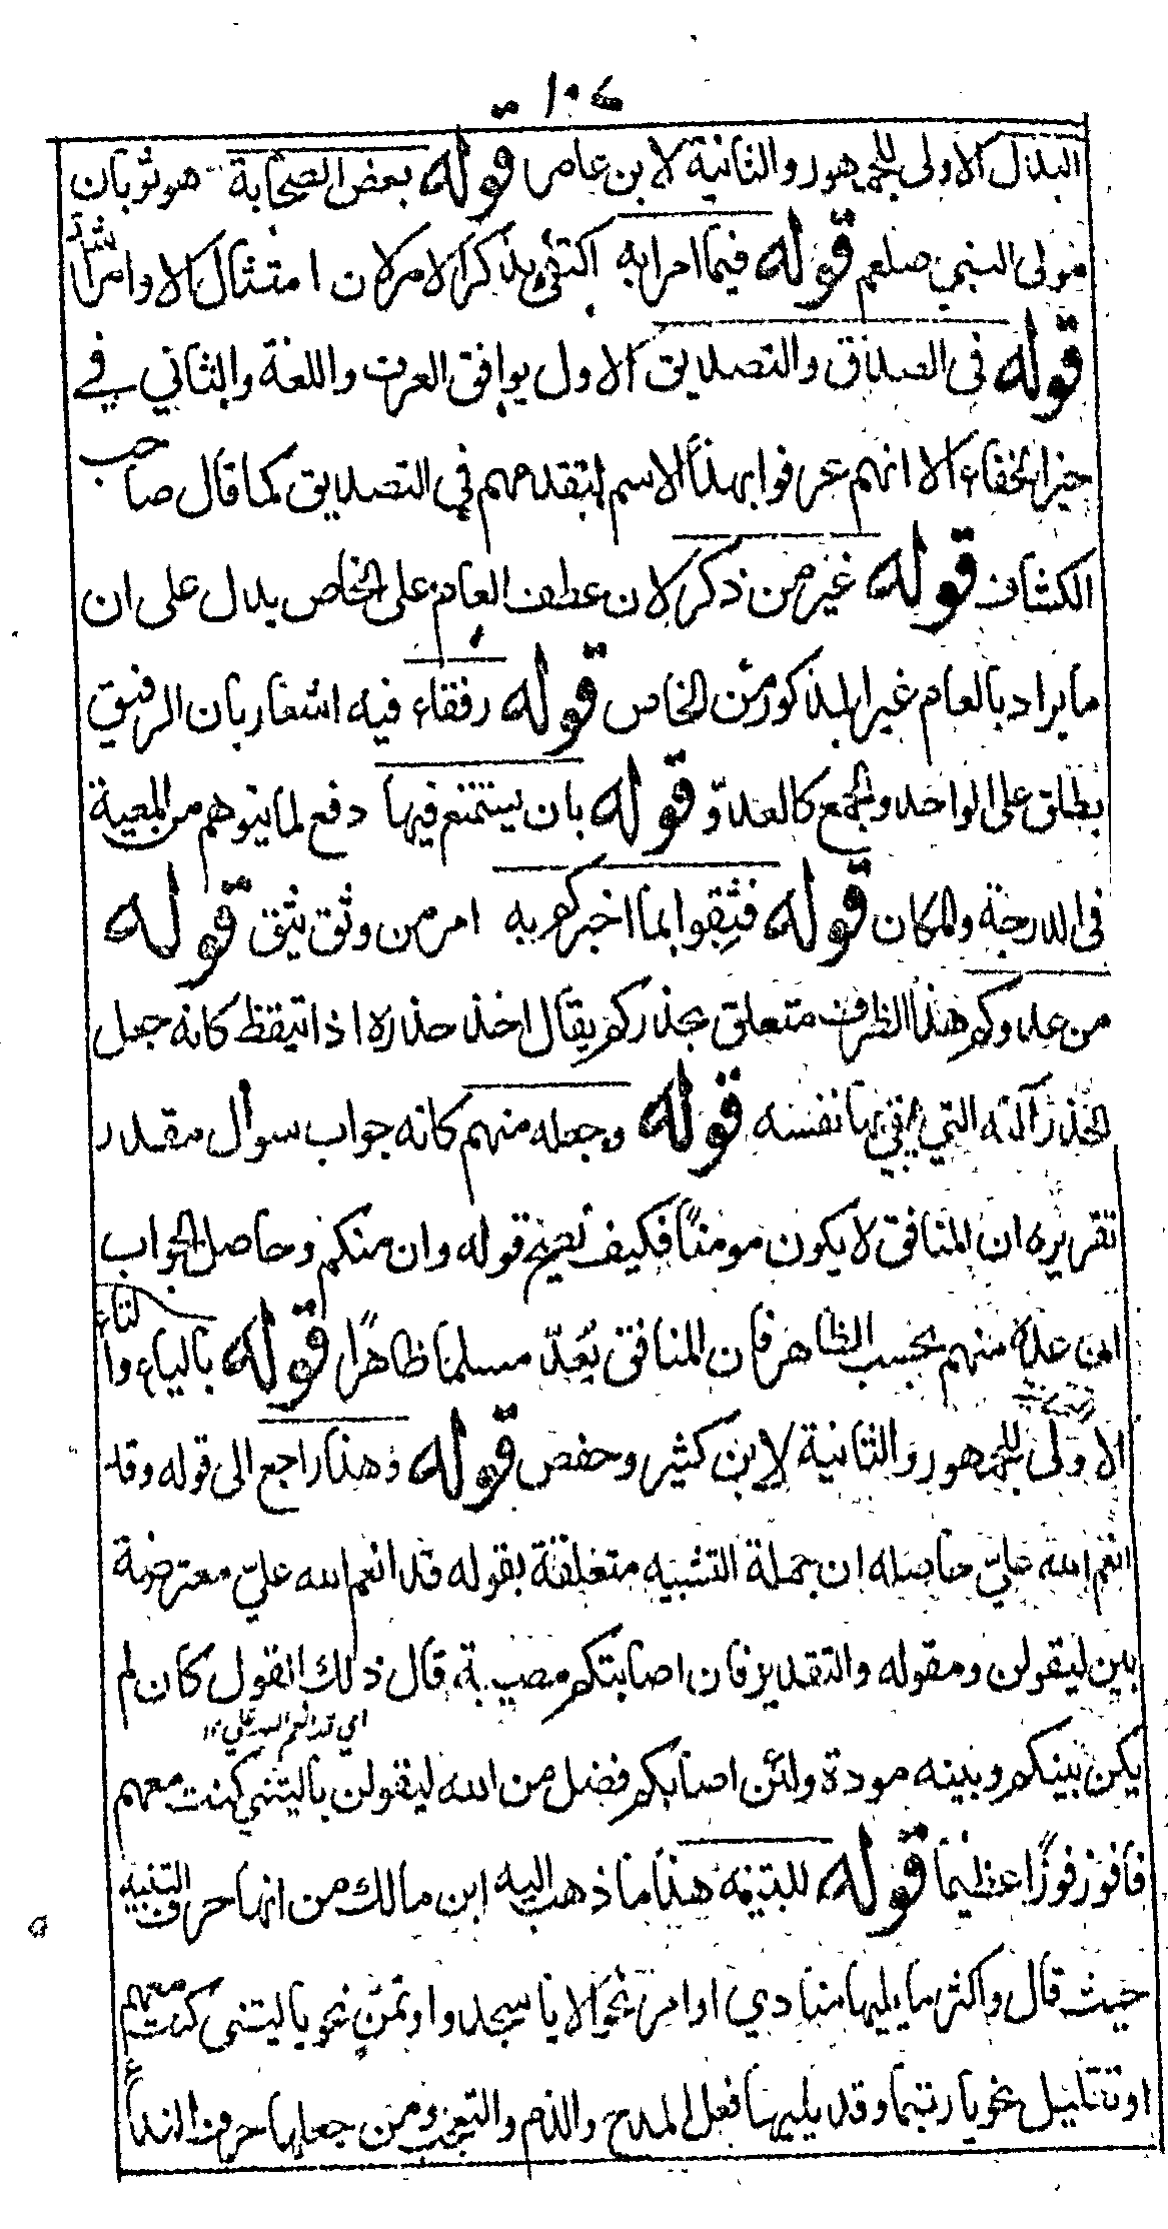 ١٠٤
البدل الاولى للجمهور والثانية لابن عامر قوله بعض الصحابة هو ثوبان
مولى النبي صلعم قوله فيما امرا به اكتفى بذكر الامر لان امتثال الاوامر اشد
قوله فى الصداق والتصديق الاول يوافق العرف واللغة والثاني في
حيز الخفاء الا انهم عرفوا بهذا الاسم لتقدمهم في التصديق كما قال صاحب
الكشاف قوله غير من ذكر لان عطف العام على الخاص يدل على ان
ما يراد بالعام غير المذكور من الخاص قوله رفقاء فيه اشعار بان الرفيق
يطلق على الواحد والجمع كالعدوّ قوله بان يستمتع فيها دفع لما يتوهم من المعية
فى الدرجة والمكان قوله فثِقوا بما اخبركم به امر من وثق يثق قوله
من عدوكم هذا الظرف متعلق بحذركم يقال اخذ حذره اذا تيقظ كانه جعل
الحذر آلته التي يقي بها نفسه قوله وجعله منهم كانه جواب سوال مقدر
تقريره ان المنافق لا يكون مومنًا فكيف يصح قوله وان منكم وحاصل الجواب
انه عدّه منهم بحسب الظاهر فان المنافق يُعدّ مسلما ظاهرًا قوله بالياء والتاء
الاولى للجمهور والثانية لابن كثير وحفص قوله وهذا راجع الى قوله وقد
انعم الله عليّ حاصله ان جملة التشبيه متعلقة بقوله قد انعم الله عليّ معترضة
بين ليقولن ومقوله والتقدير فان اصابتكم مصيبة قال ذلك القول كان لم
اي قد انعم الله علي ١٢
يكن بينكم وبينه مودة ولئن اصابكم فضل من الله ليقولن ياليتني كنت معهم
فافوز فوزًا عظيما قوله للتنبيه هذا ما ذهب اليه ابن مالك من انها حرف التنبيه
حيث قال واكثر ما يليها منادي او امر نحو الا يا سجدوا وتمنٍ نحو ياليتنى كنت معهم
او تقليل نحو يا ربتما وقد يليها فعل المدح والذم والتعجب ومن جعلها حرف النداء